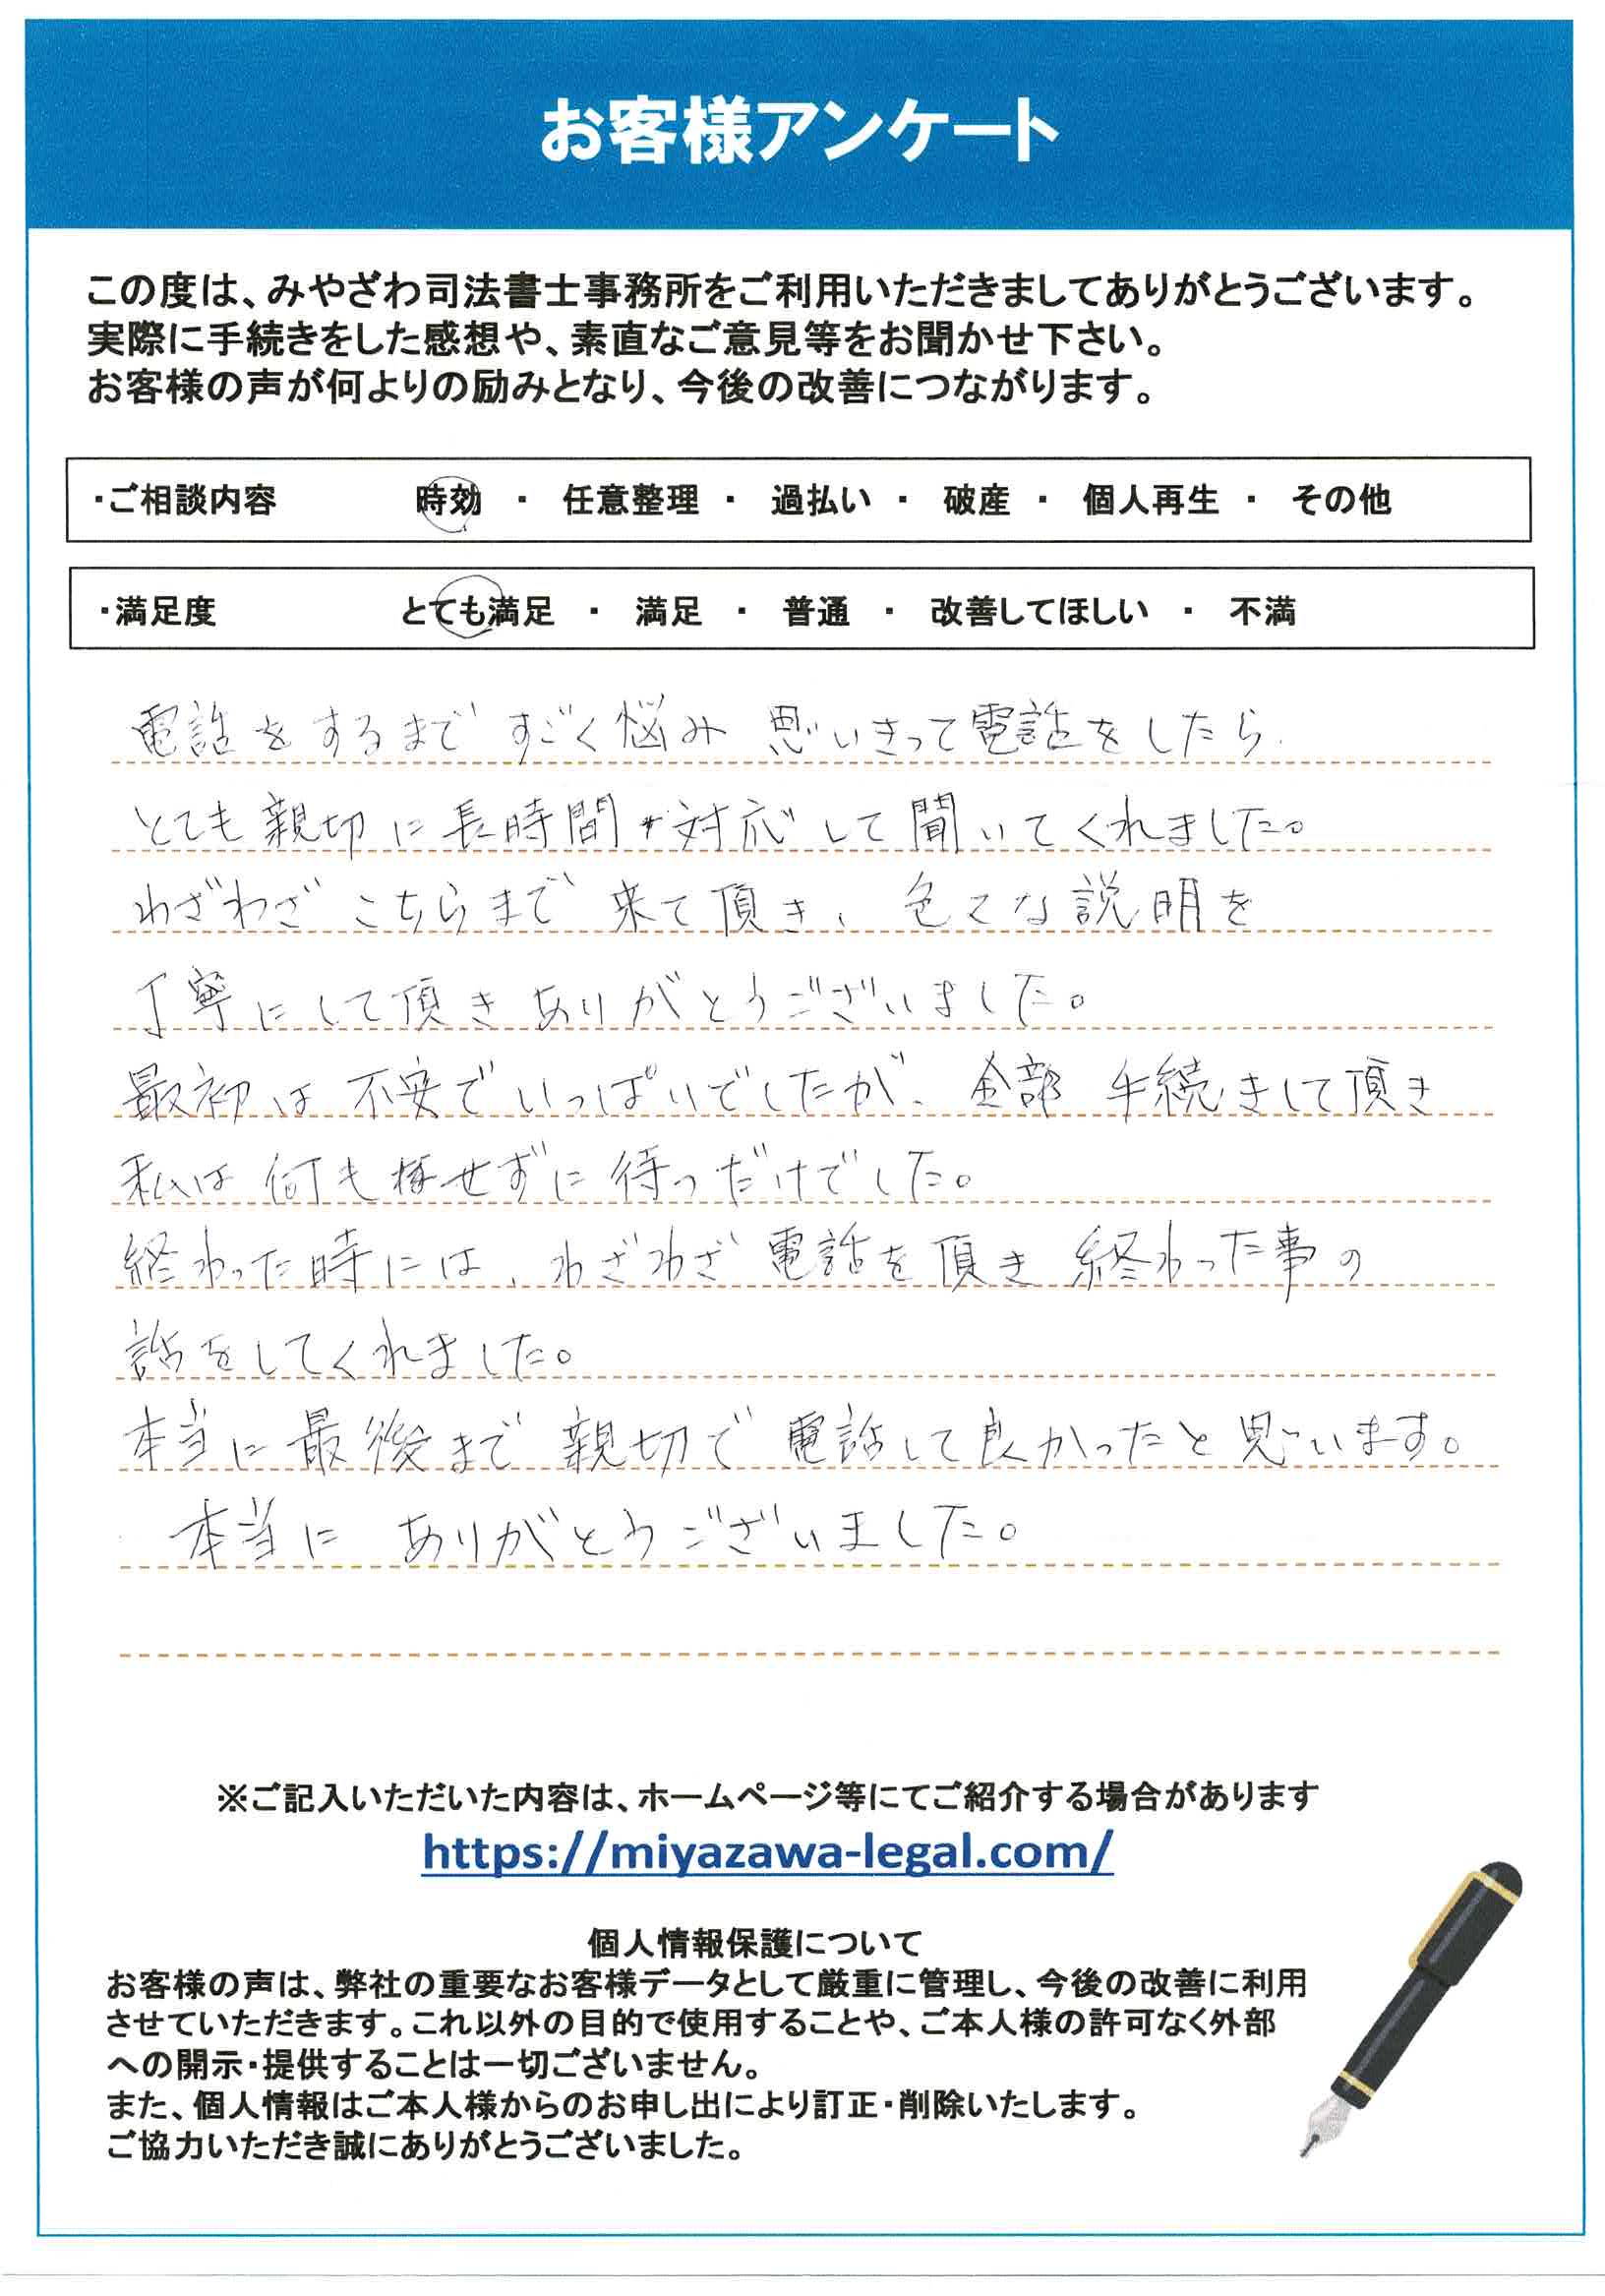 お客様アンケート
この度は、みやざわ司法書士事務所をご利用いただきましてありがとうございます。
実際に手続きをした感想や、素直なご意見等をお聞かせ下さい。
お客様の声が何よりの励みとなり、今後の改善につながります。
・ご相談内容 時効 ・ 任意整理 ・ 過払い ・ 破産 ・ 個人再生 ・ その他
・満足度 とても満足 ・ 満足 ・ 普通 ・ 改善してほしい ・ 不満
電話をするまで すごく悩み 思いきって電話をしたら、
とても親切に長時間 対応して聞いてくれました。
わざわざ こちらまで 来て頂き、色々な説明を
丁寧にして頂き ありがとうございました。
最初は 不安で いっぱいでしたが、全部 手続きして頂き
私は 何も せずに 待つだけでした。
終わった時には、わざわざ 電話を頂き 終わった事の
話をしてくれました。
本当に最後まで 親切で 電話して良かったと思います。
本当に ありがとうございました。
※ご記入いただいた内容は、ホームページ等にてご紹介する場合があります
https://miyazawa-legal.com/
個人情報保護について
お客様の声は、弊社の重要なお客様データとして厳重に管理し、今後の改善に利用
させていただきます。これ以外の目的で使用することや、ご本人様の許可なく外部
への開示・提供することは一切ございません。
また、個人情報はご本人様からのお申し出により訂正・削除いたします。
ご協力いただき誠にありがとうございました。